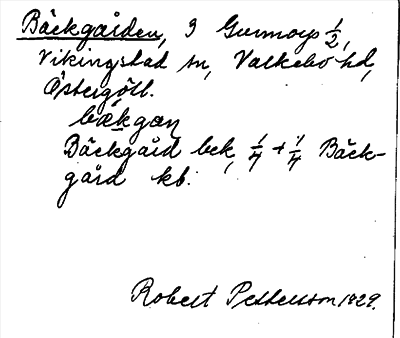 Bäckgården, 3 Gunnorps 1/2,
Vikingstad sn, Valkebo hd,
Östergötl.
bækgan
Bäckgård bek, 1/4 + 1/4 Bäck-
gård kb.
Robert Pettersson 1929.